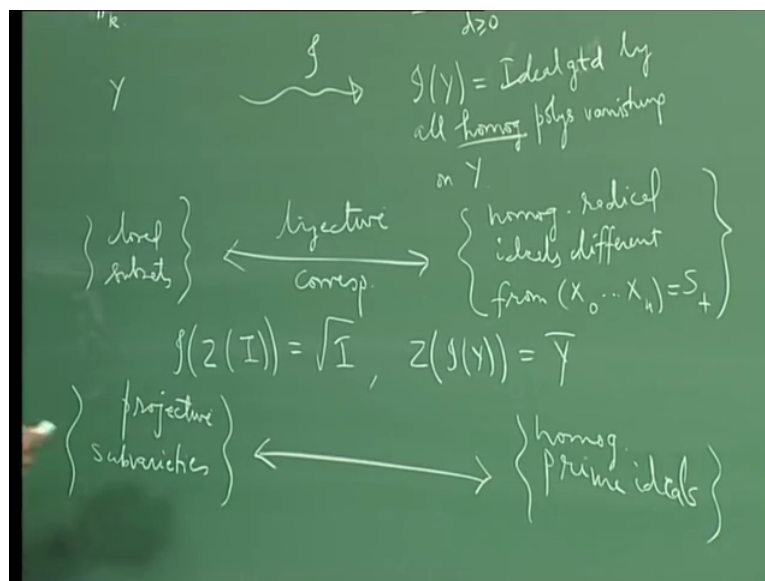 k
d≥0
Y
𝓘
𝓘(Y) = Ideal gtd by
all homog polys vanishing
on Y
{ closed subsets }
bijective
corresp.
{ homog. radical
ideals different
from (X₀ ... Xₙ) = S₊ }
𝓘(Z(I)) = √I, Z(𝓘(Y)) = Y̅
{ projective
subvarieties }
{ homog.
prime ideals }